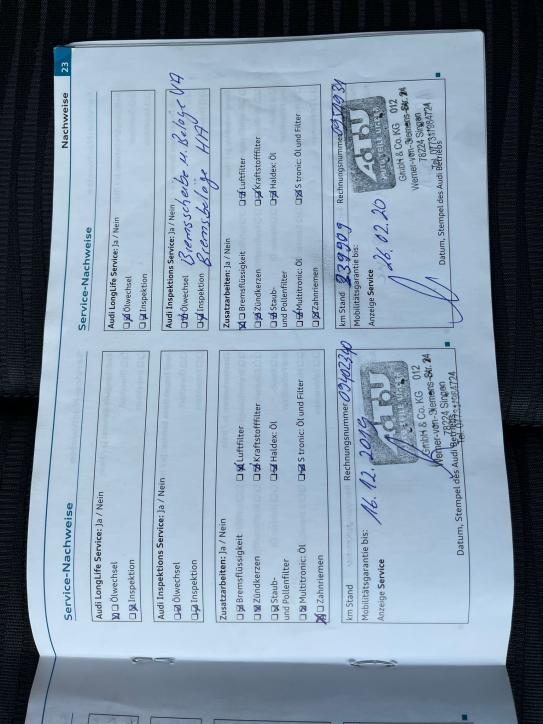 Service-Nachweise
Audi LongLife Service: Ja / Nein
Ölwechsel
Inspektion
Audi Inspektions Service: Ja / Nein
Ölwechsel
Inspektion
Zusatzarbeiten: Ja / Nein
Bremsflüssigkeit
Luftfilter
Zündkerzen
Kraftstofffilter
Staub-
und Pollenfilter
Haldex: Öl
Multitronic: Öl
S tronic: Öl und Filter
Zahnriemen
km Stand
Rechnungsnummer 09402340
Mobilitätsgarantie bis:
16.12.2019
Anzeige Service
GmbH & Co. KG 012
Werner-von-Siemens-Str. 24
78224 Singen
Datum, Stempel des Audi Betriebs
Nachweise 23
Service-Nachweise
Audi LongLife Service: Ja / Nein
Ölwechsel
Inspektion
Audi Inspektions Service: Ja / Nein
Ölwechsel Bremsscheibe u. Beläge VA
Inspektion Bremsbeläge HA
Zusatzarbeiten: Ja / Nein
Bremsflüssigkeit
Luftfilter
Zündkerzen
Kraftstofffilter
Staub-
und Pollenfilter
Haldex: Öl
Multitronic: Öl
S tronic: Öl und Filter
Zahnriemen
km Stand 239909
Rechnungsnummer
Mobilitätsgarantie bis:
Anzeige Service
26.02.20
GmbH & Co. KG 012
Werner-von-Siemens-Str. 24
78224 Singen
Tel. 07731/1984724
Datum, Stempel des Audi Betriebs